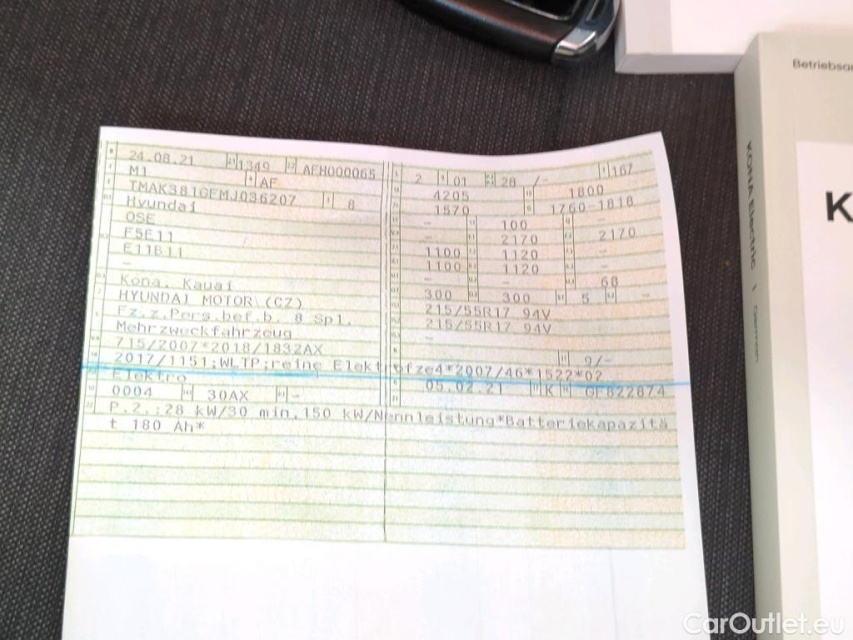 Betriebsan
KONA Electric
K
24.08.21 1349 AFH000065 2 01 28 /- 167
M1 AF 4205 1800
TMAK381GFMJ036207 8 1570 1760-1818
Hyundai - 100 -
OSE - 2170 2170
F5E11 1100 1120 -
E11B11 1100 1120 -
- - - 68
Kona, Kauai 300 300 5 -
HYUNDAI MOTOR (CZ) 215/55R17 94V
Fz.z.Pers.bef.b. 8 Spl. 215/55R17 94V
Mehrzweckfahrzeug -
715/2007*2018/1832AX - 9/-
2017/1151;WLTP;reine Elektrofz e4*2007/46*1522*02
Elektro 05.02.21 K GF822874
0004 30AX -
P.2.:28 kW/30 min,150 kW/Nennleistung*Batteriekapazitä
t 180 Ah*
CarOutlet.eu